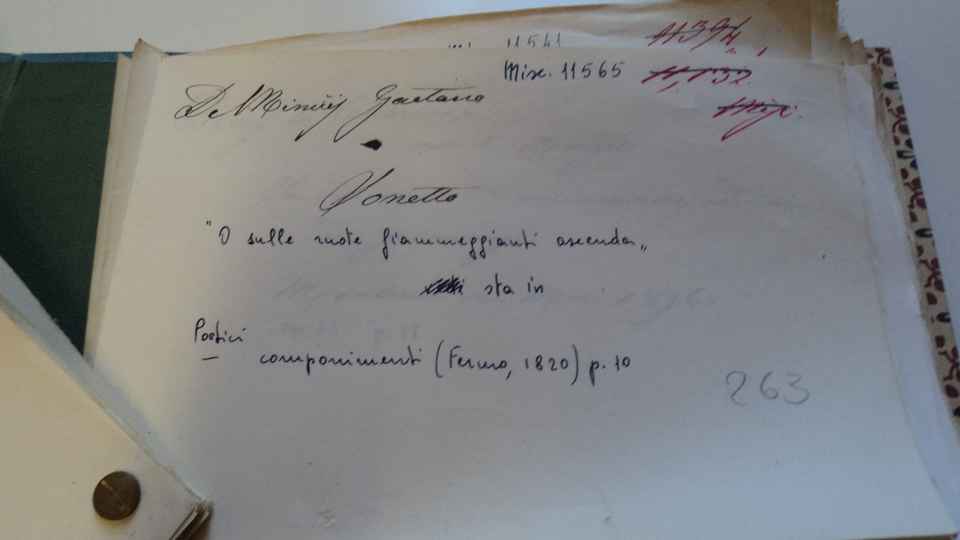 11541
11394
Misc. 11565
11,132
Misc.
De Minicij Gaetano
Sonetto
"O sulle ruote fiammeggianti ascenda„
sta in
Poetici
componimenti (Fermo, 1820) p. 10
263